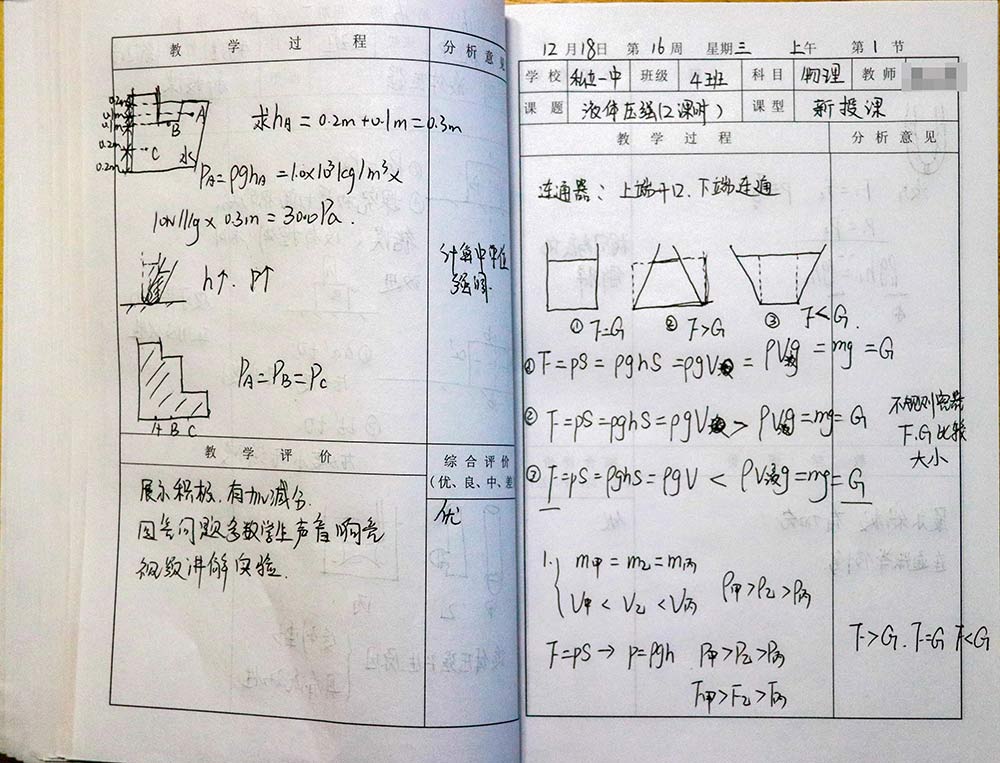 教 学 过 程
分 析 意 见
0.2m
A
B
0.1m
0.2m
C
水
0.2m
求hA = 0.2m+0.1m = 0.3m
PA = ρghA = 1.0×10³kg/m³×
10N/kg × 0.3m = 3000Pa.
h↑. P↑
计算中单位
强调.
PA = PB = PC
A B C
教 学 评 价
综 合 评 价
(优、良、中、差
展示积极、有加减分.
回答问题多数学生声音响亮
视频讲解实验.
优
12月18日 第16周 星期三 上午 第1节
学 校 私立一中 班级 4班 科目 物理 教师
课 题 液体压强(2课时) 课型 新授课
教 学 过 程
分 析 意 见
连通器: 上端开口、下端连通
① F=G
② F>G
③ F<G.
① F=pS = ρghS = ρgV = ρV液g = mg = G
② F=pS = ρghS = ρgV > ρV液g = mg = G
③ F=pS = ρghS = ρgV < ρV液g = mg = G
不规则容器
F.G比较
大小
1. m甲 = m乙 = m丙
V甲 < V乙 < V丙
ρ甲>ρ乙>ρ丙
F=pS → p=ρgh P甲>P乙>P丙
F甲>F乙>F丙
F>G. F=G F<G